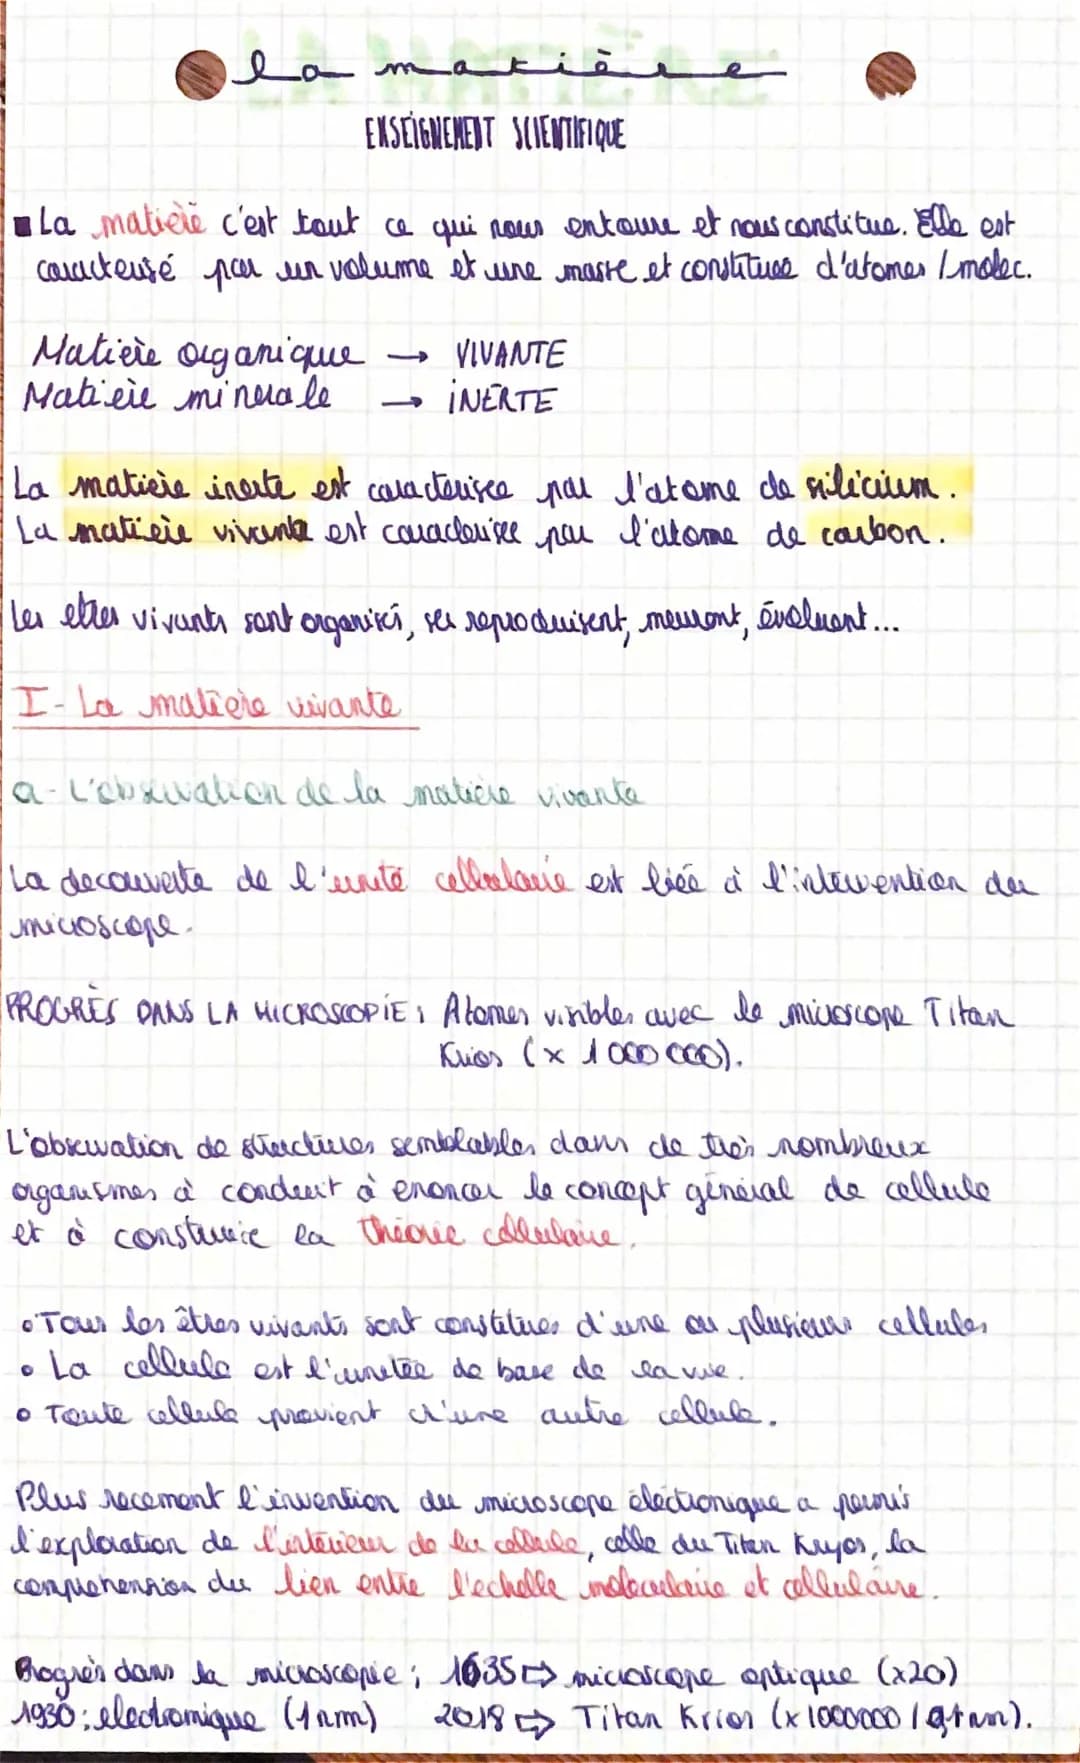 la matière
ENSEIGNEMENT SCIENTIFIQUE
La matière c'est tout ce qui nous entoure et nous constitue. Elle est
caracterisé par un volume et une masse et constituee d'atomes / molec.
Matière organique → VIVANTE
Matière minerale → INERTE
La matière inerte est caracterisee par l'atome de silicium.
La matière vivante est caracterisee par l'atome de carbon.
Les etres vivants sont organisés, se reproduisent, meuront, évoluent...
I- La matière vivante
a- L'observation de la matière vivante
La decouverte de l'unité cellulaire est liée à l'intervention du
microscope.
PROGRÈS DANS LA MICROSCOPIE : Atomes visibles avec le microscope Titan
Krios (x 1 000 000).
L'observation de structures semblables dans de très nombreux
organismes à conduit à enoncer le concept général de cellule
et à construire la théorie cellulaire.
• Tous les êtres vivants sont constitues d'une ou plusieurs cellules
• La cellule est l'unitée de base de la vie.
• Toute cellule provient d'une autre cellule.
Plus recement l'invention du microscope électronique a permis
l'exploration de l'intérieur de la cellule, celle du Titan Kryos, la
comprehension du lien entre l'echelle moleculaire et cellulaire.
Progrès dans la microscopie ; 1635 ⇨ microscope optique (x20)
1930 : electronique (1 nm) 2018 ⇨ Titan Krios (x 1000000 /